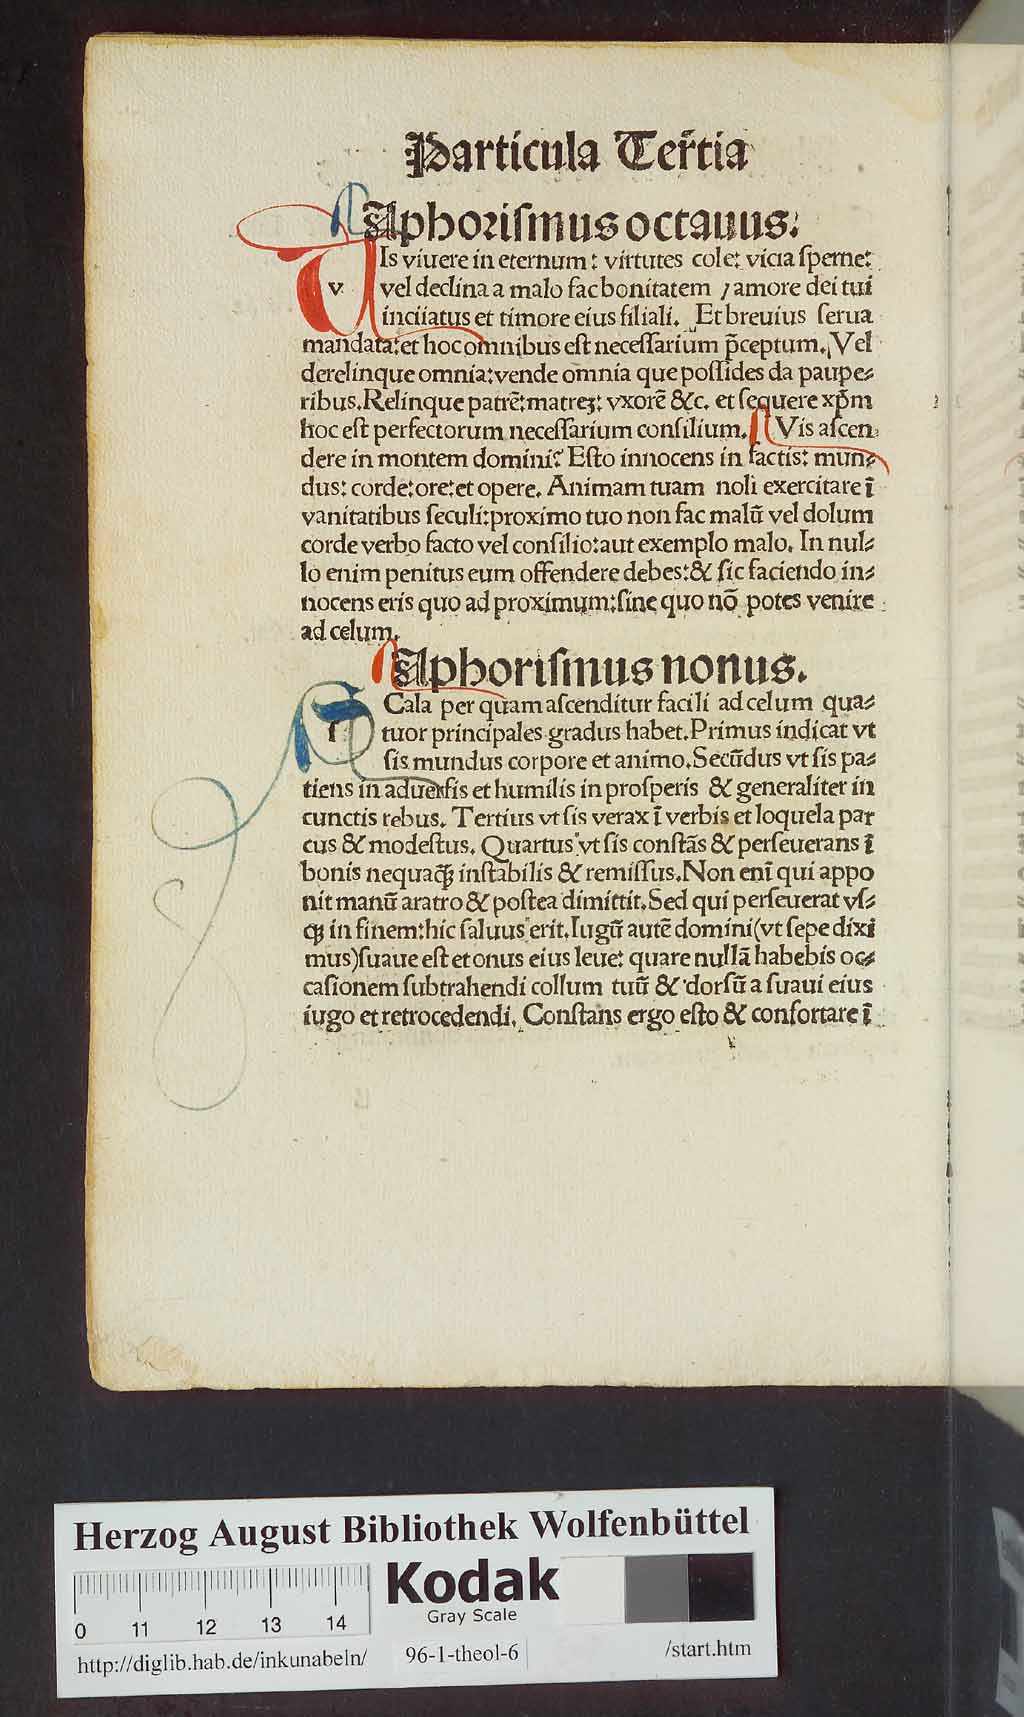 Particula Tertia
Aphoriſmus octauus.
VIs viuere in eternum: virtutes cole: vicia ſperne:
vel declina a malo fac bonitatem / amore dei tui
inciiatus et timore eius filiali. Et breuius ſerua
mandata: et hoc omnibus eſt neceſſarium p̄ceptum. Vel
derelinque omnia: vende omnia que poſſides da paupe⸗
ribus. Relinque patrē: matreꝫ: vxorē &c. et ſequere xp̄m
hoc eſt perfectorum neceſſarium conſilium. Vis aſcen
dere in montem domini? Eſto innocens in factis: mun⸗
dus: corde: ore: et opere. Animam tuam noli exercitare ī
vanitatibus ſeculi: proximo tuo non fac malū vel dolum
corde verbo facto vel conſilio: aut exemplo malo. In nul⸗
lo enim penitus eum offendere debes: & ſic faciendo in⸗
nocens eris quo ad proximum: ſine quo nō potes venire
ad celum.
Aphoriſmus nonus.
SCala per quam aſcenditur facili ad celum qua⸗
tuor principales gradus habet. Primus indicat vt
ſis mundus corpore et animo. Secūdus vt ſis pa⸗
tiens in aduerſis et humilis in proſperis & generaliter in
cunctis rebus. Tertius vt ſis verax ī verbis et loquela par
cus & modeſtus. Quartus vt ſis conſtās & perſeuerans ī
bonis nequaꝙ̄ inſtabilis & remiſſus. Non enī qui appo
nit manū aratro & poſtea dimittit. Sed qui perſeuerat vſ⸗
ꝙ in finem: hic ſaluus erit. Iugū autē domini (vt ſepe dixi
mus) ſuaue eſt et onus eius leue: quare nullā habebis oc⸗
caſionem ſubtrahendi collum tuū & dorſū a ſuaui eius
iugo et retrocedendi. Conſtans ergo eſto & confortare ī
Herzog August Bibliothek Wolfenbüttel
Kodak
Gray Scale
0 11 12 13 14
http://diglib.hab.de/inkunabeln/ 96-1-theol-6 /start.htm